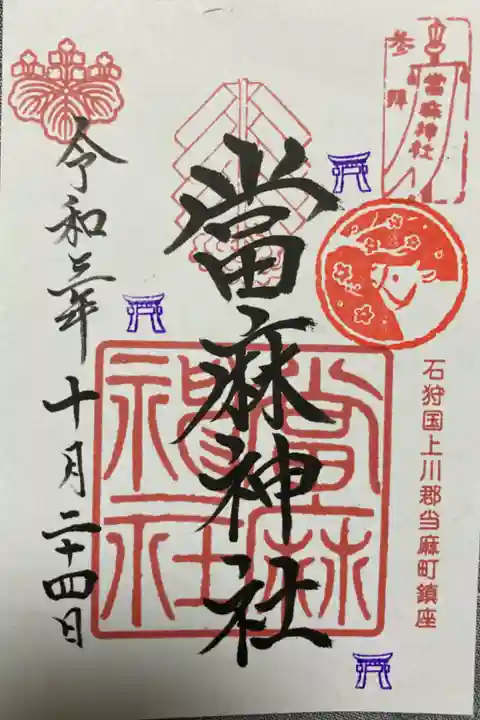 参拝
當麻神社
石狩国上川郡当麻町鎮座
當麻神社
當麻神社
令和三年十月二十四日